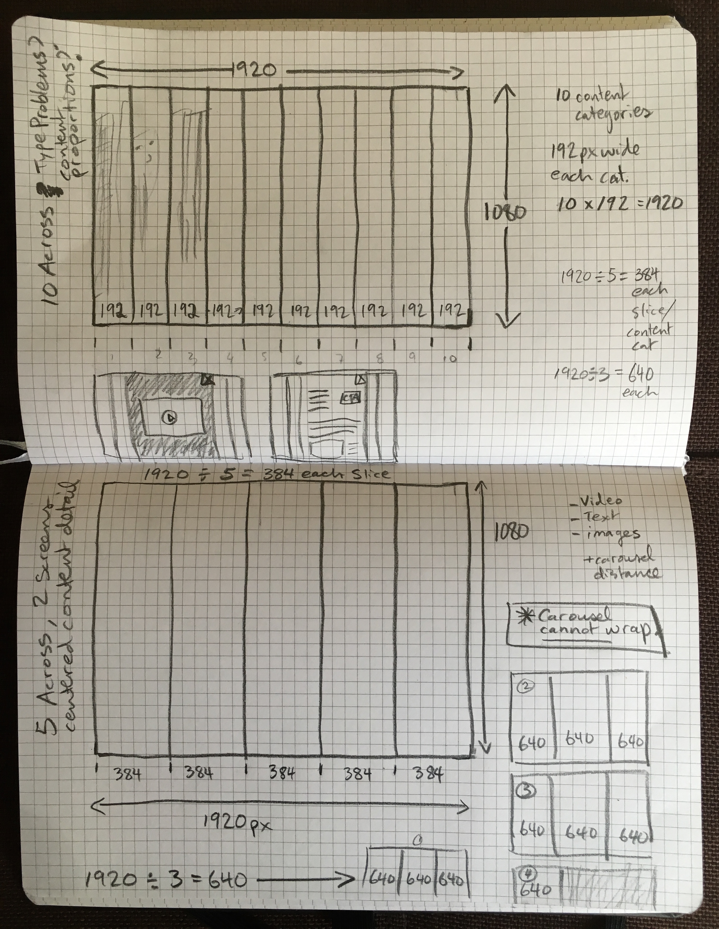 10 Across Type Problems?
content
proportions?
1920
1080
192 192 192 192 192 192 192 192 192 192
1 2 3 4 5 6 7 8 9 10
10 content
categories
192px wide
each cat.
10 x 192 = 1920
1920 ÷ 5 = 384
each
slice/
content
cat
1920 ÷ 3 = 640
each
CTA
1920 ÷ 5 = 384 each Slice
5 Across, 2 Screens
centered content detail
1080
384 384 384 384 384
1920px
1920 ÷ 3 = 640
640 640 640
- Video
- Text
- images
+ carousel
distance
* Carousel
cannot wrap
②
640 640 640
③
640 640 640
④
640